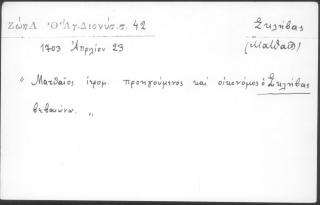 Ζώη Λ. Ὁ Ἅγ. Διονύσ. σ. 42 Σκλήβας
1703 Ἀπριλίου 23 (Ματθαῖος)
"Ματθαῖος ἱερομ. προηγούμενος καὶ οἰκονόμος ὁ Σκλήβας
βεβαιώνω. „